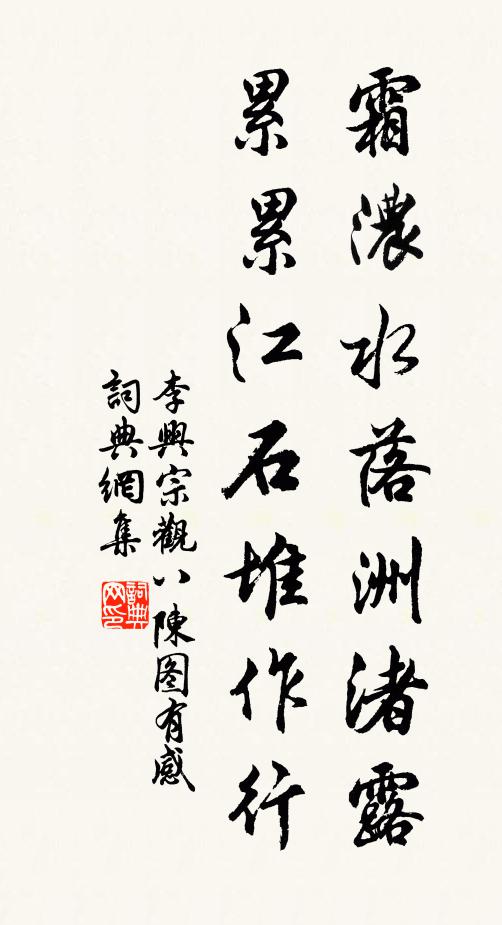 霜濃水落洲渚露
累累江石堆作行
李興宗觀八陳图有感
詞典網集
詞典
网印